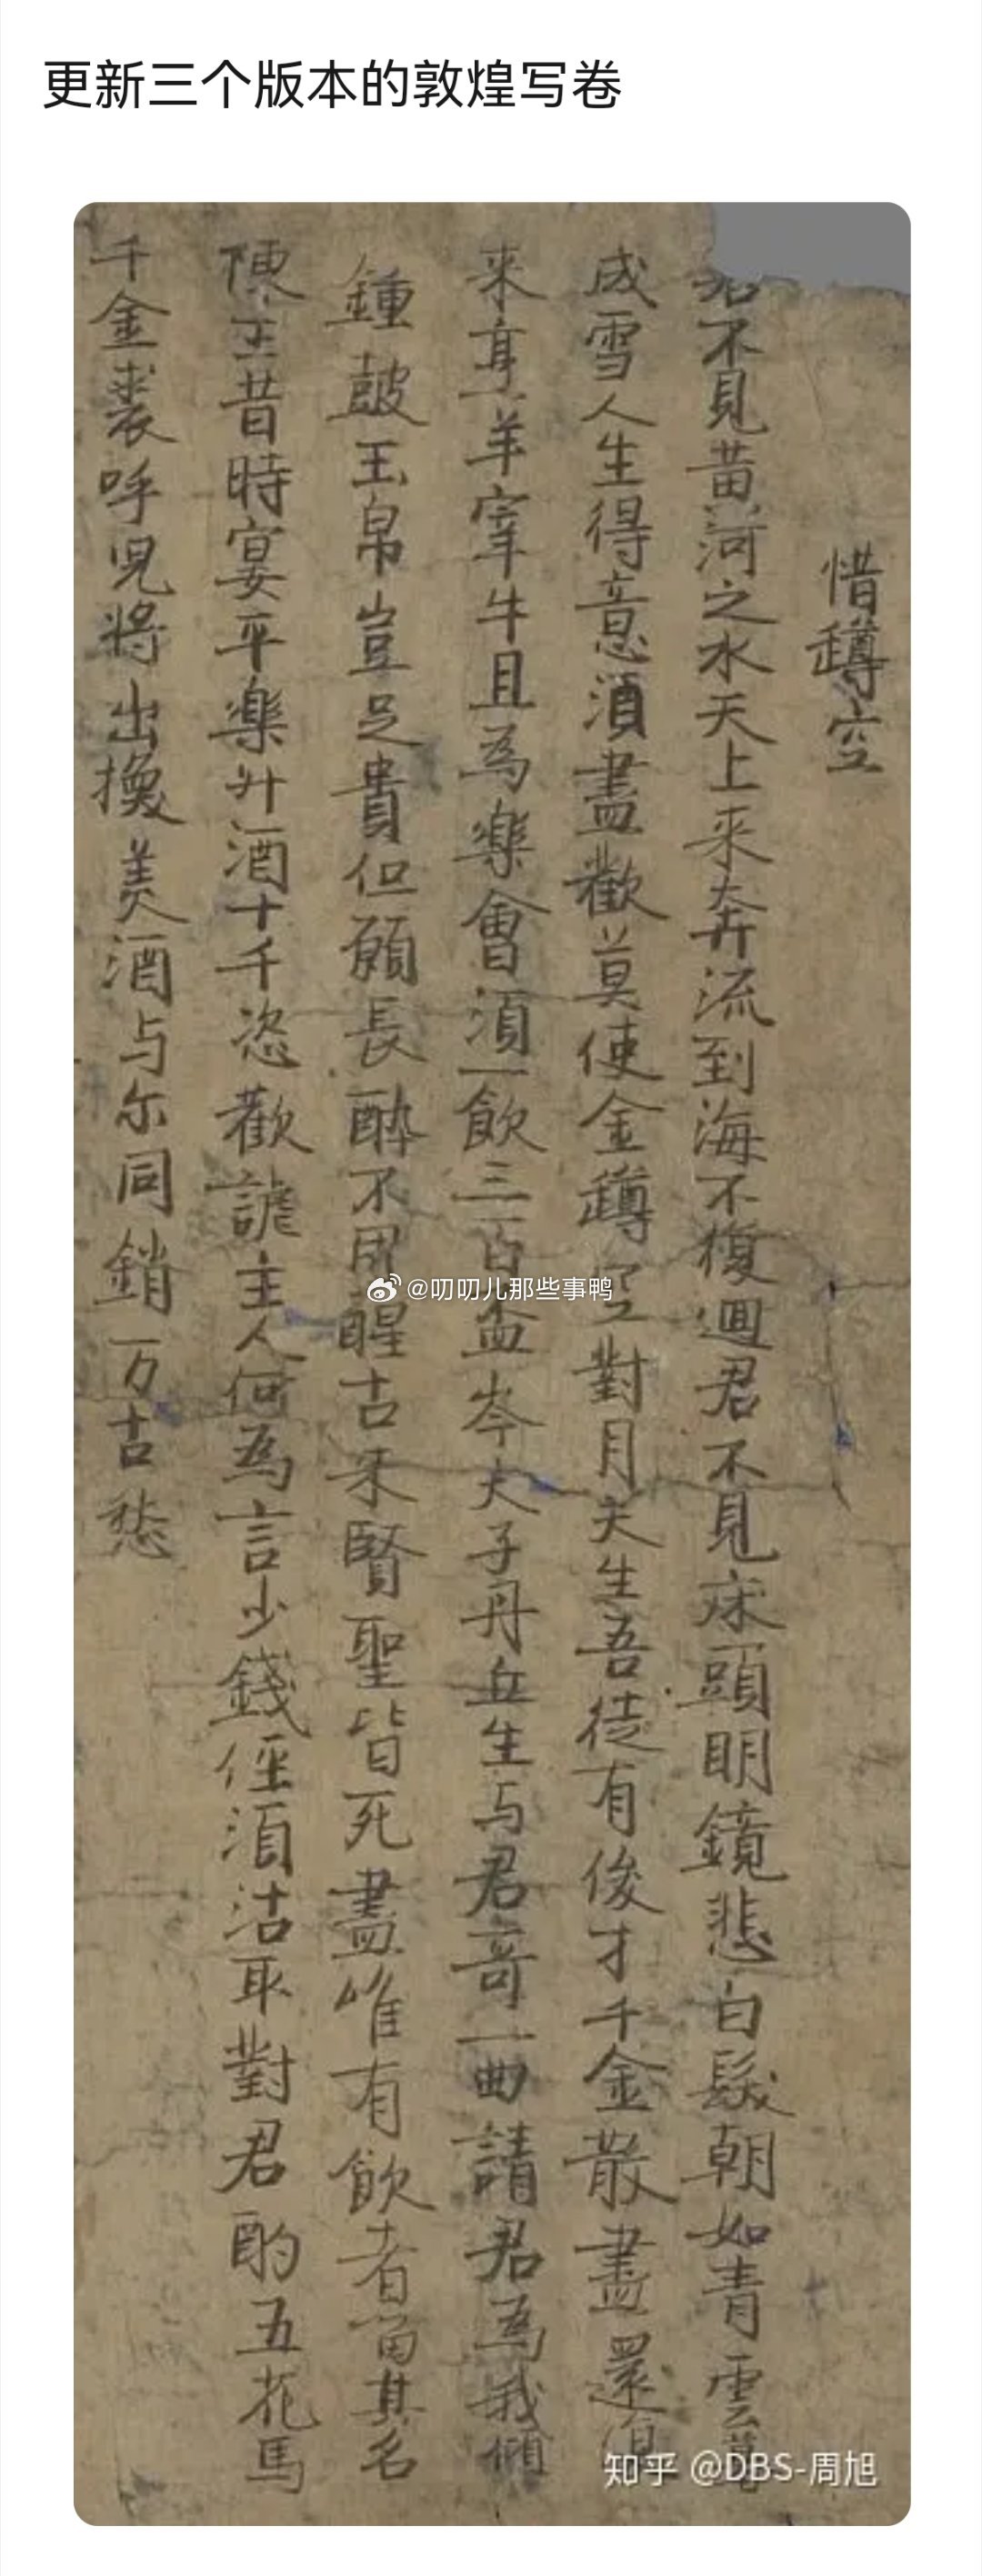 更新三个版本的敦煌写卷
惜罇空
君不見黃河之水天上来奔流到海不復迴君不見床頭明鏡悲白髮朝如青雲暮
成雪人生得意須盡歡莫使金罇空對月天生吾徒有俊才千金散盡還復
来烹羊宰牛且為樂會須一飲三百盃岑夫子丹丘生与君哥一曲請君為我傾
鍾皷玉帛豈足貴但願長醉不用醒古来賢聖皆死盡唯有飲者留其名
陳王昔時宴平樂斗酒十千恣歡謔主人何為言少錢俓須沽取對君酌五花馬
千金裘呼児將出換美酒与尔同銷万古愁
@叨叨儿那些事鸭
知乎 @DBS-周旭